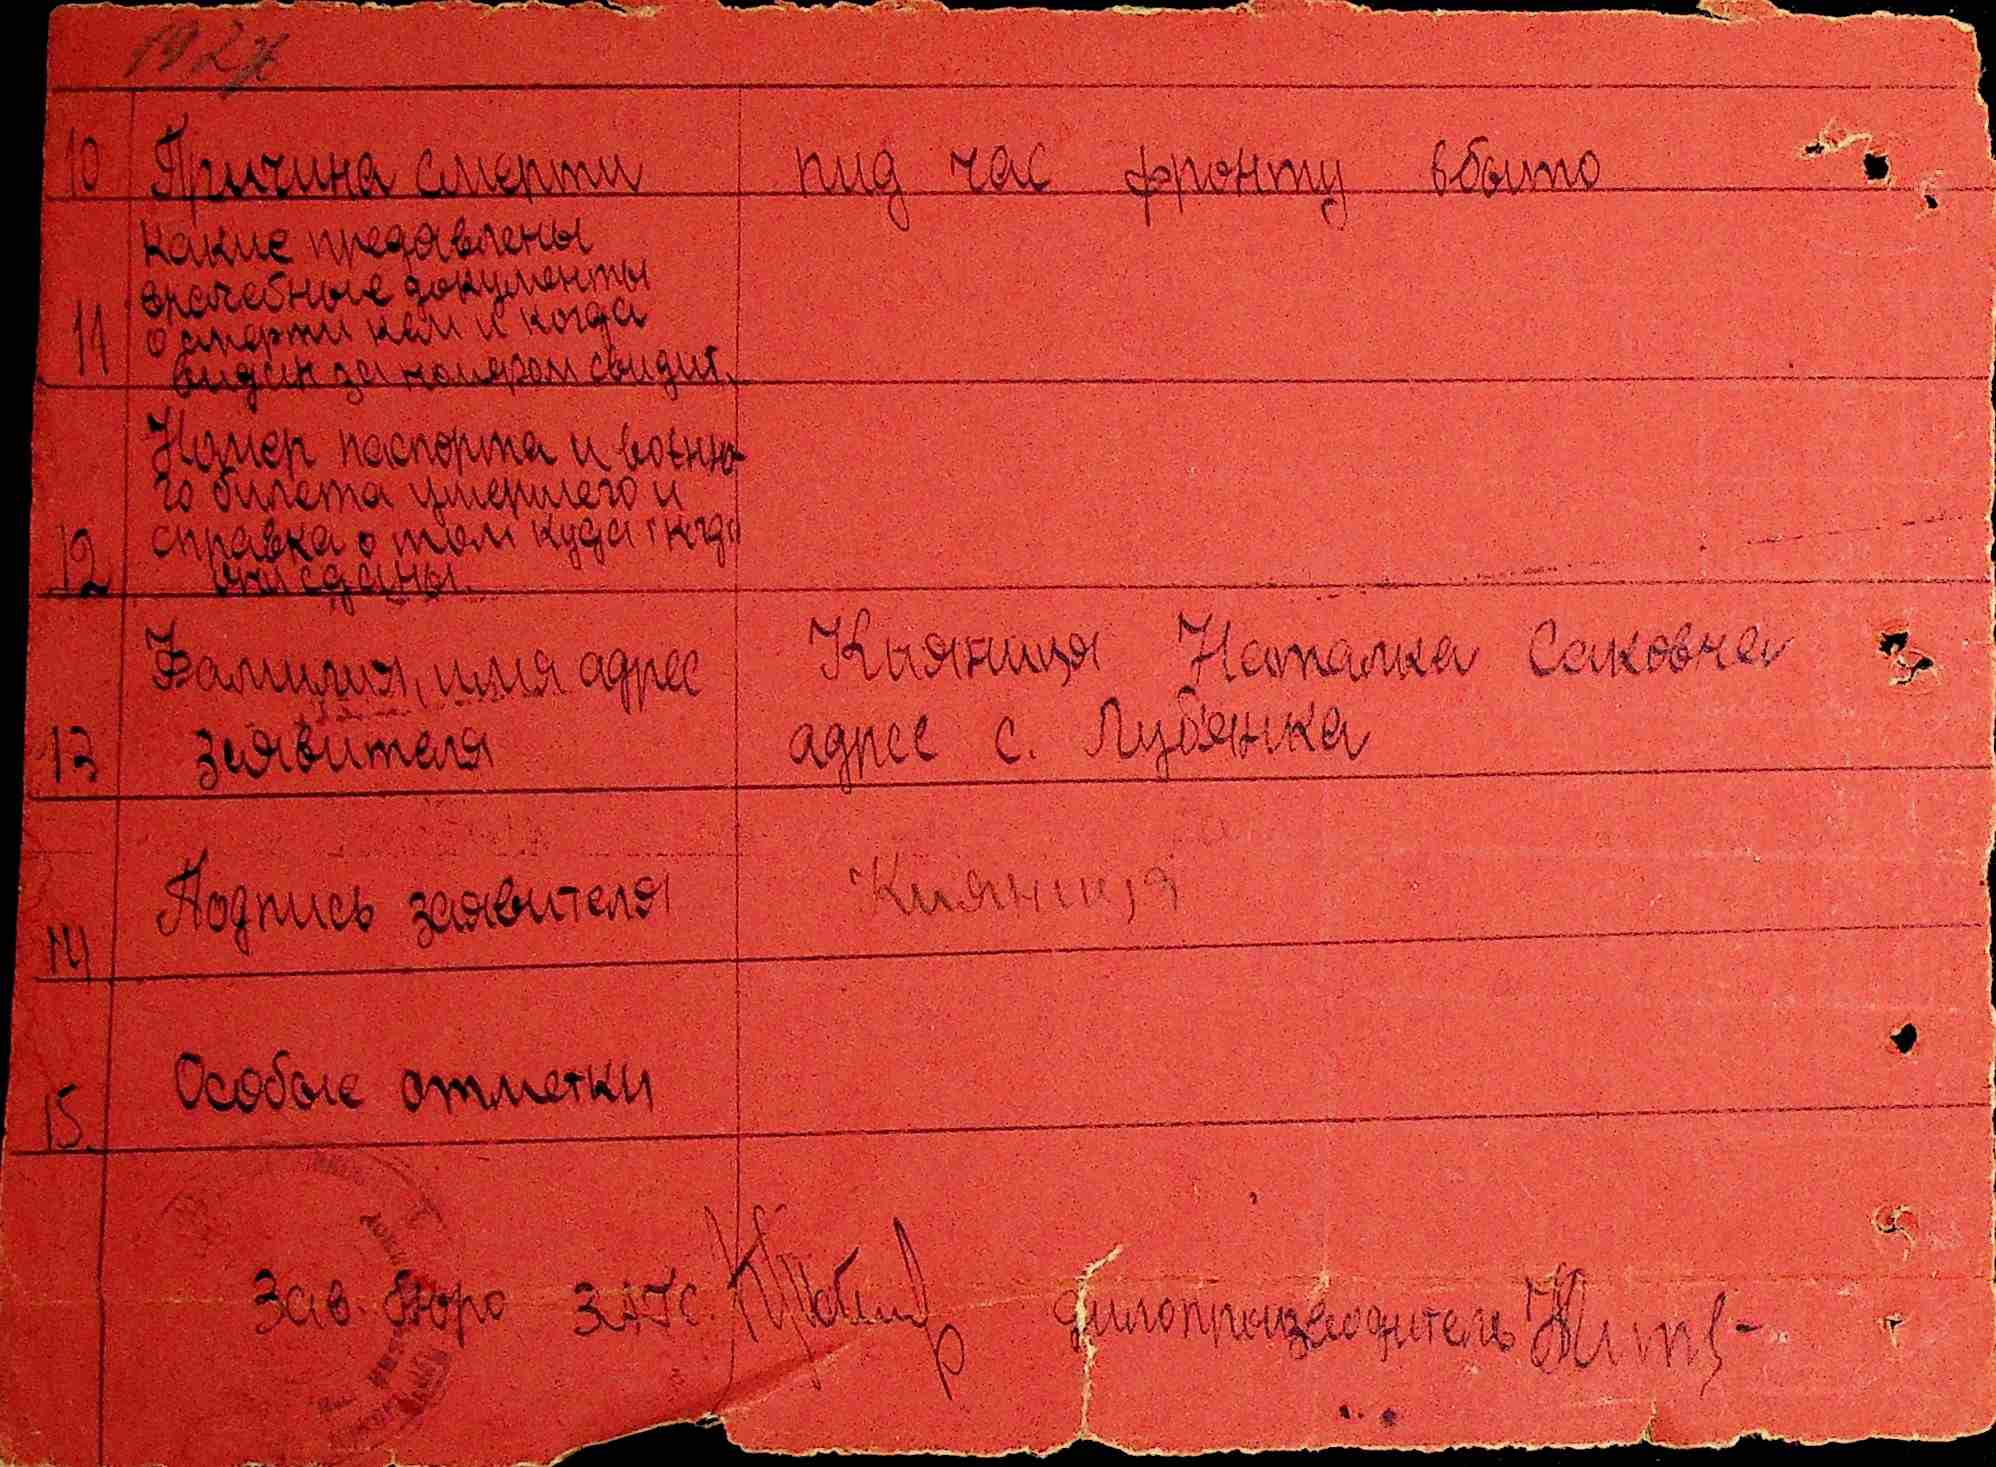 10 Причина смерти пид час фронту вбыто
какие предявлены
врачебные документы
о смерти кем и когда
11 видан за номером свидит.
Номер паспорта и военно-
го билета умершего и
справка о том куда и когда
12 они сданы.
Фамилия, имя адрес Кыяныця Наталка Саковна
13 заявителя адрес с. Лубянка
14 Подпись заявителя Кияниця
15. Особые отметки
Зав. бюро ЗАГС. дилопроизводитель